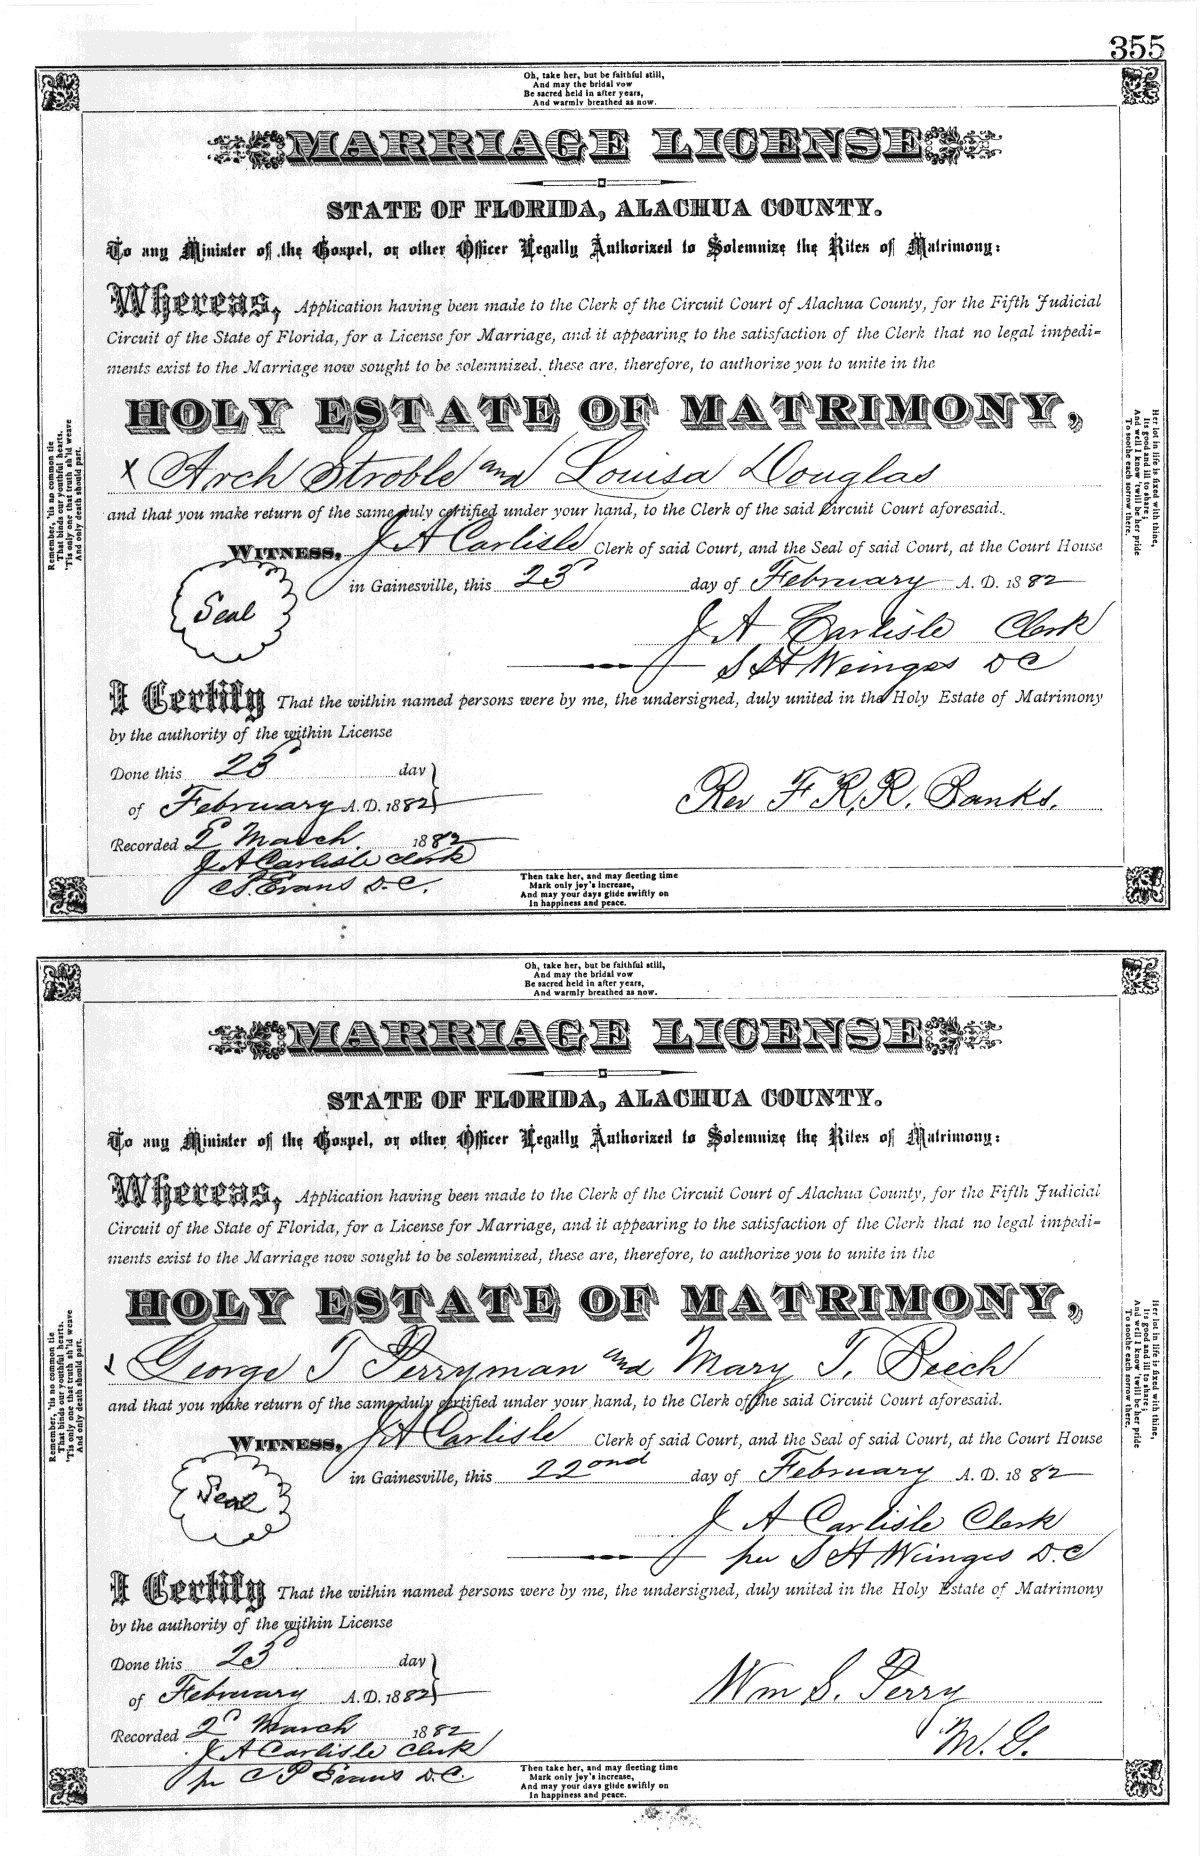 355
Oh, take her, but be faithful still,
And may the bridal vow
Be sacred held in after years,
And warmly breathed as now.
MARRIAGE LICENSE
STATE OF FLORIDA, ALACHUA COUNTY.
To any Minister of the Gospel, or other Officer Legally Authorized to Solemnize the Rites of Matrimony:
Whereas, Application having been made to the Clerk of the Circuit Court of Alachua County, for the Fifth Judicial
Circuit of the State of Florida, for a License for Marriage, and it appearing to the satisfaction of the Clerk that no legal impedi-
ments exist to the Marriage now sought to be solemnized, these are, therefore, to authorize you to unite in the
HOLY ESTATE OF MATRIMONY,
X Arch Stroble and Louisa Douglas
and that you make return of the same duly certified under your hand, to the Clerk of the said Circuit Court aforesaid.
WITNESS, J A Carlisle Clerk of said Court, and the Seal of said Court, at the Court House
in Gainesville, this 23d day of February A. D. 1882
Seal
J A Carlisle Clerk
S H Weinges DC
I Certify That the within named persons were by me, the undersigned, duly united in the Holy Estate of Matrimony
by the authority of the within License
Done this 23d day
of February A. D. 1882
Rev F. R. R. Banks.
Recorded 2d March 1882
J A Carlisle Clerk
C P Evans D.C.
Remember, 'tis no common tie
That binds our youthful hearts,
'Tis only one that truth sh'ld weave
And only death should part.
Her lot in life is fixed with thine,
Its good and ill to share;
And well I know 'twill be her pride
To soothe each sorrow there.
Then take her, and may fleeting time
Mark only joy's increase,
And may your days glide swiftly on
In happiness and peace.
Oh, take her, but be faithful still,
And may the bridal vow
Be sacred held in after years,
And warmly breathed as now.
MARRIAGE LICENSE
STATE OF FLORIDA, ALACHUA COUNTY.
To any Minister of the Gospel, or other Officer Legally Authorized to Solemnize the Rites of Matrimony:
Whereas, Application having been made to the Clerk of the Circuit Court of Alachua County, for the Fifth Judicial
Circuit of the State of Florida, for a License for Marriage, and it appearing to the satisfaction of the Clerk that no legal impedi-
ments exist to the Marriage now sought to be solemnized, these are, therefore, to authorize you to unite in the
HOLY ESTATE OF MATRIMONY,
x George T Perryman and Mary T. Beech
and that you make return of the same duly certified under your hand, to the Clerk of the said Circuit Court aforesaid.
WITNESS, J A Carlisle Clerk of said Court, and the Seal of said Court, at the Court House
in Gainesville, this 22ond day of February A. D. 1882
Seal
J A Carlisle Clerk
per S H Weinges D.C
I Certify That the within named persons were by me, the undersigned, duly united in the Holy Estate of Matrimony
by the authority of the within License
Done this 23d day
of February A.D. 1882
Wm S. Perry
M. G.
Recorded 2d March 1882
J A Carlisle Clerk
pr C P Evans D.C.
Remember, 'tis no common tie
That binds our youthful hearts,
'Tis only one that truth sh'ld weave
And only death should part.
Her lot in life is fixed with thine,
Its good and ill to share;
And well I know 'twill be her pride
To soothe each sorrow there.
Then take her, and may fleeting time
Mark only joy's increase,
And may your days glide swiftly on
In happiness and peace.